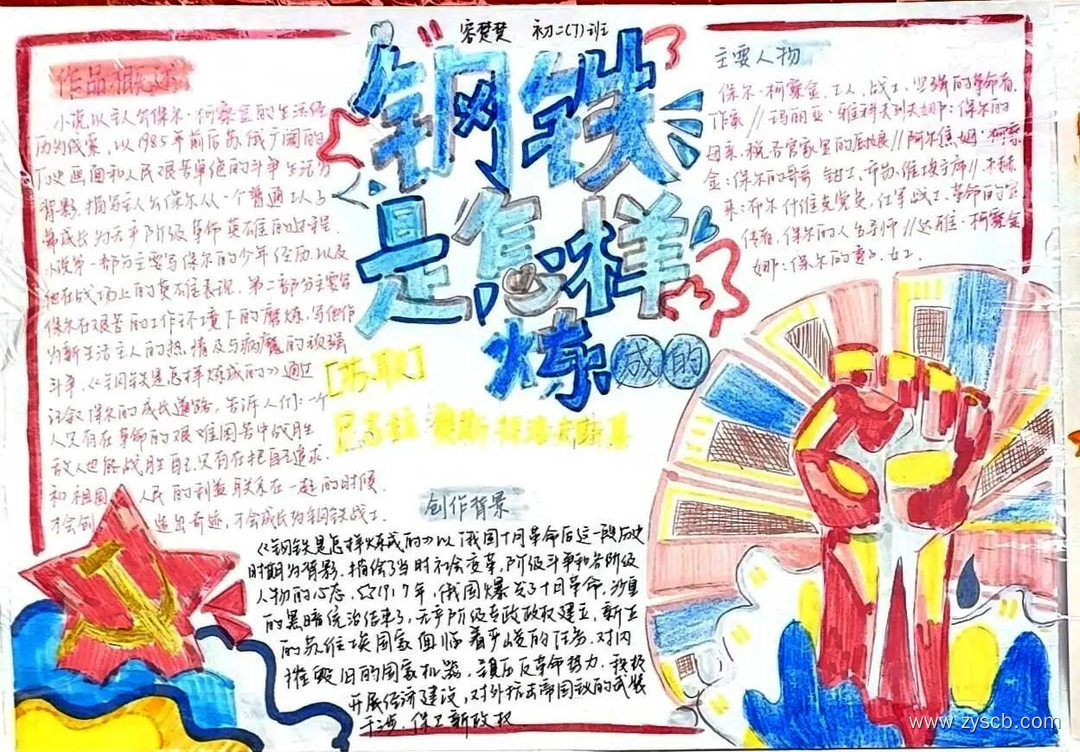 容楚楚 初二(7)班
钢铁
是怎样
炼成的
[苏联]
尼古拉·奥斯特洛夫斯基
作品概述
小说以主人公保尔·柯察金的生活经
历为线索,以1985年前后苏俄广阔的
历史画面和人民艰苦卓绝的斗争生活为
背影,描写主人公保尔从一个普通工人子
弟成长为无产阶级革命英雄的过程.
小说第一部分主要写保尔的少年经历,以及
他在战场上的英雄表现,第二部分主要写
保尔在艰苦的工作环境下的磨炼,写他作
为新生活主人的热情及与病魔的顽强
斗争.《钢铁是怎样炼成的》通过
记叙保尔的成长道路,告诉人们:一个
人只有在革命的艰难困苦中战胜
敌人也能战胜自己,只有在把自己追求
和祖国 人民的利益联系在一起的时候
才会创 造出奇迹,才会成长为钢铁战士.
主要人物
保尔·柯察金:工人,战士,坚强的革命者,
作家//玛丽亚·雅科夫列夫娜:保尔的
母亲,税务官家里的厨娘//阿尔焦姆·柯察
金:保尔的哥哥 钳工,市苏维埃主席//朱赫
来:布尔什维克党员,红军战士,革命的宣
传者,保尔的人生导师//达雅·柯察金
娜:保尔的妻子,女工.
创作背景
《钢铁是怎样炼成的》以俄国十月革命后这一段历史
时期为背影,描绘了当时社会变革,阶级斗争和各阶级
人物的心态,1917年,俄国爆发了十月革命,沙皇
的黑暗统治结束了,无产阶级专政政权建立,新生
的苏维埃国家面临着严峻的任务,对内
摧毁旧的国家机器,镇压反革命势力,积极
开展经济建设,对外抗击帝国主义的武装
干涉,保卫新政权.
www.zyscb.com